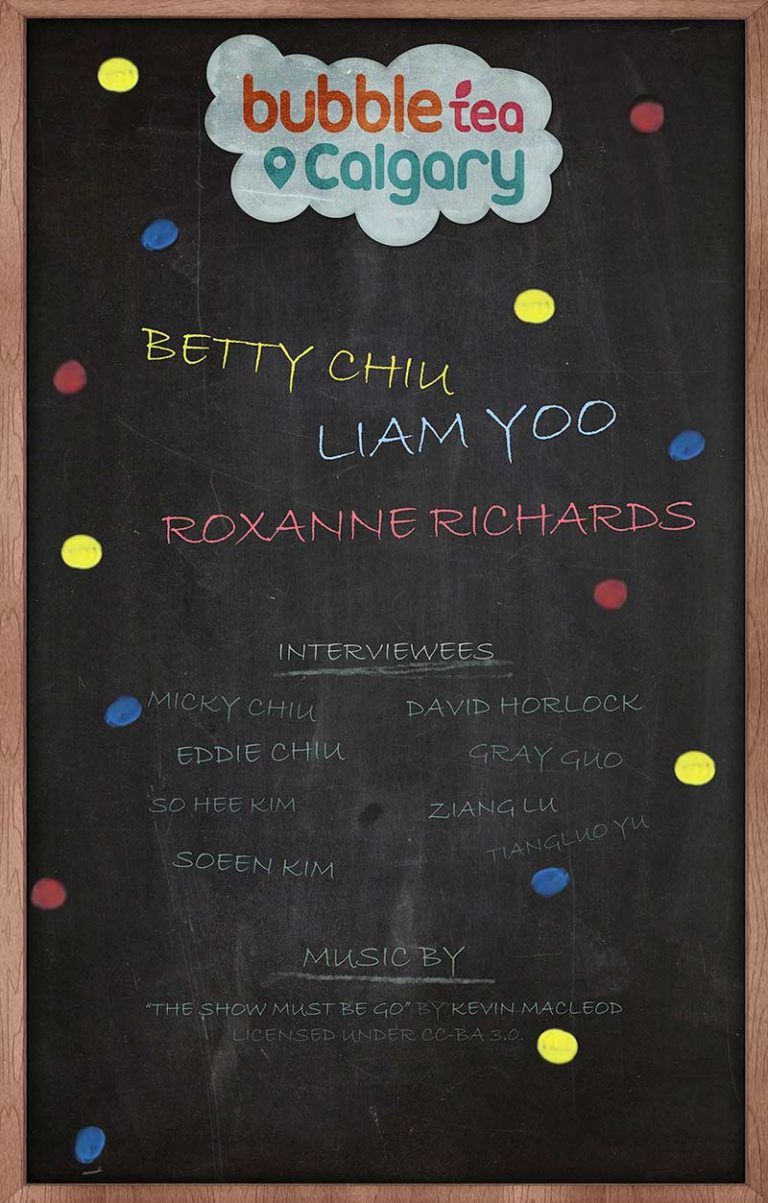 bubble tea
Calgary
BETTY CHIU
LIAM YOO
ROXANNE RICHARDS
INTERVIEWEES
MICKY CHIU DAVID HORLOCK
EDDIE CHIU GRAY GUO
SO HEE KIM ZIANG LU
SOEEN KIM TIANGLUO YU
MUSIC BY
"THE SHOW MUST BE GO" BY KEVIN MACLEOD
LICENSED UNDER CC-BA 3.0.